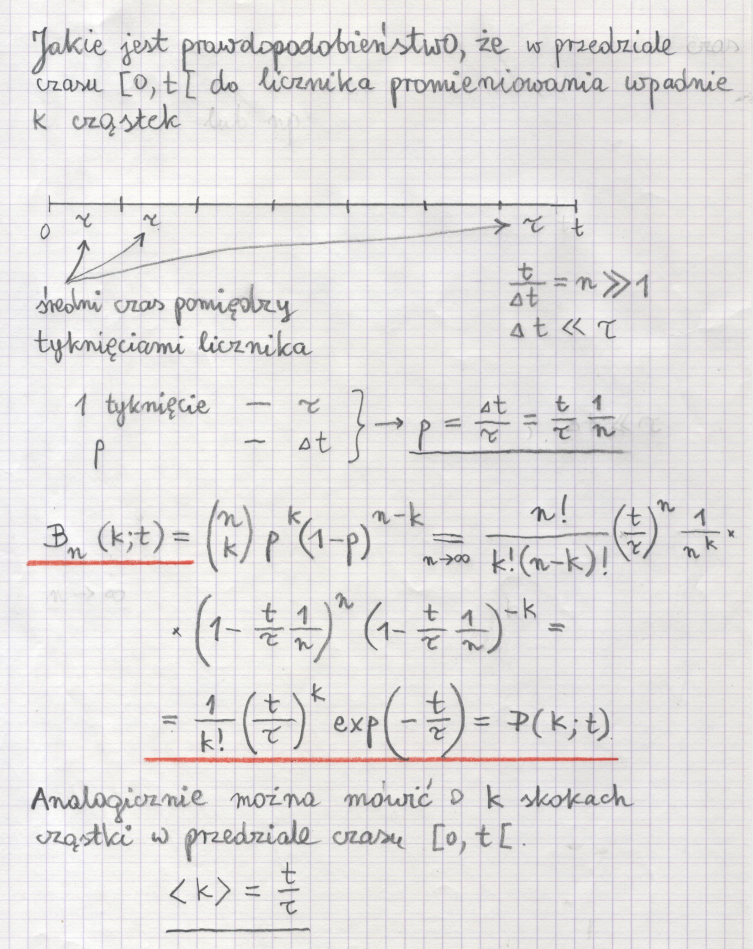 Jakie jest prawdopodobieństwo, że w przedziale
czasu [0, t[ do licznika promieniowania wpadnie
k cząstek
0 τ τ τ t
średni czas pomiędzy
tyknięciami licznika
t/Δt = n ≫ 1
Δt ≪ τ
1 tyknięcie — τ
p — Δt } → p = Δt/τ = t/τ 1/n
Bₙ(k;t) = (n k) p^k (1-p)^{n-k} =_{n→∞} n!/(k!(n-k)!) (t/τ)^n 1/n^k ×
× (1 - t/τ 1/n)^n (1 - t/τ 1/n)^{-k} =
= 1/k! (t/τ)^k exp(-t/τ) = P(k;t)
Analogicznie można mówić o k skokach
cząstki w przedziale czasu [0, t[.
⟨k⟩ = t/τ